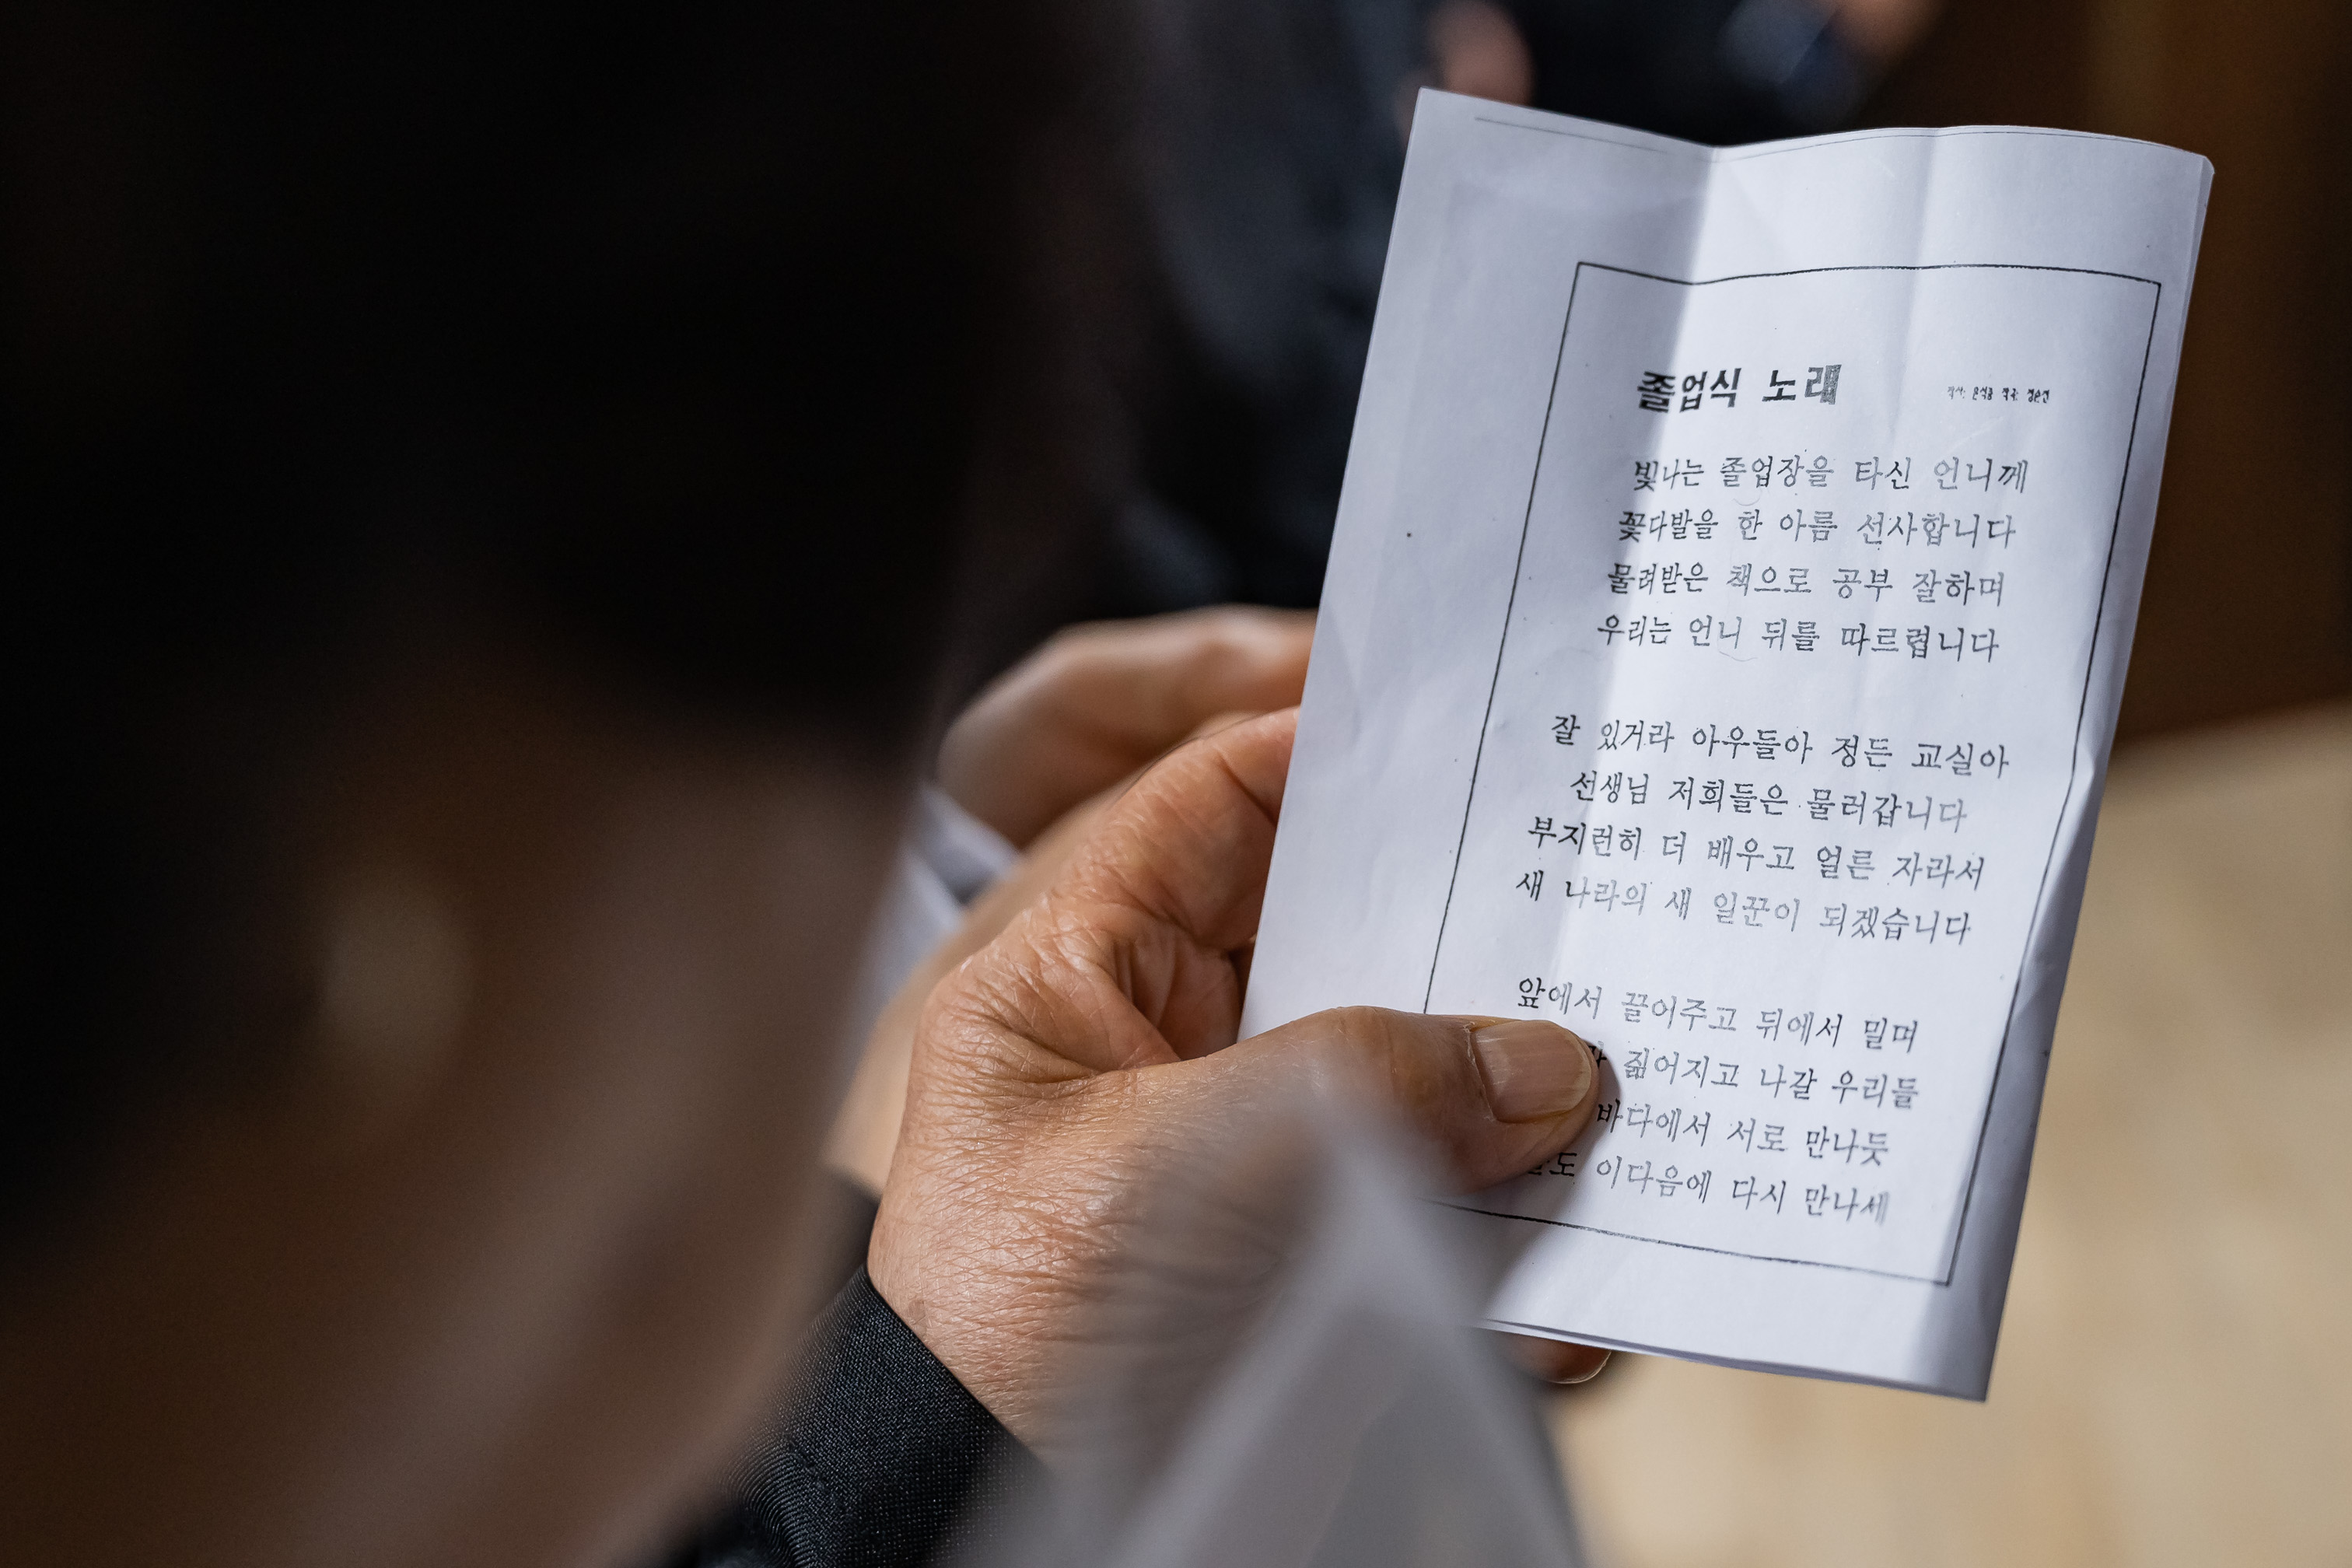 졸업식 노래
작사: 윤석중 작곡: 정순철
빛나는 졸업장을 타신 언니께
꽃다발을 한 아름 선사합니다
물려받은 책으로 공부 잘하며
우리는 언니 뒤를 따르렵니다
잘 있거라 아우들아 정든 교실아
선생님 저희들은 물러갑니다
부지런히 더 배우고 얼른 자라서
새 나라의 새 일꾼이 되겠습니다
앞에서 끌어주고 뒤에서 밀며
짊어지고 나갈 우리들
바다에서 서로 만나듯
이다음에 다시 만나세